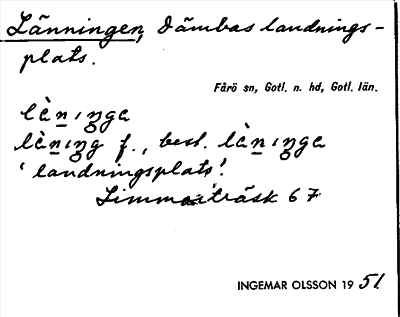 Länningen, Dämbas landnings-
plats.
Fårö sn, Gotl. n. hd, Gotl. län.
lèṉıŋga
lèṉıŋg f., best. lèṉıŋga
'landningsplats'.
Limmorträsk 67
INGEMAR OLSSON 1951